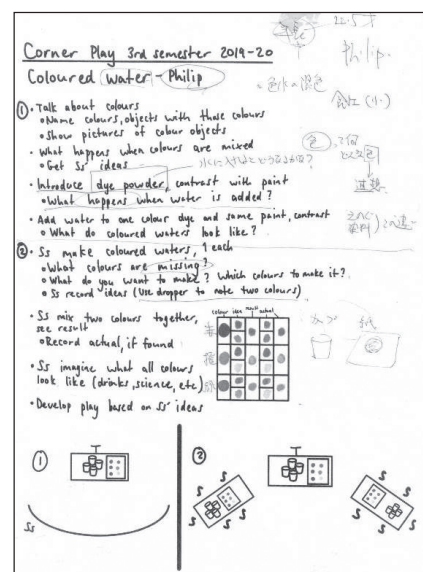 Corner Play 3rd semester 2019-20
Coloured Water - Philip
Philip.
① • Talk about colours
◦ Name colours, objects with those colours
◦ Show pictures of colour objects
• What happens when colours are mixed
◦ Get Ss' ideas
• Introduce dye powder, contrast with paint
◦ What happens when water is added?
• Add water to one colour dye and same paint, contrast
◦ What do coloured waters look like?
② • Ss make coloured waters, 1 each
◦ What colours are missing?
◦ What do you want to make? Which colours to make it?
◦ Ss record ideas (Use dropper to note two colours)
• Ss mix two colours together,
see result
◦ Record actual, if found
colour idea result actual
• Ss imagine what all colours
look like (drinks, science, etc)
• Develop play based on Ss' ideas
色
紙
① T
Ss
② T
S S S S S S S S